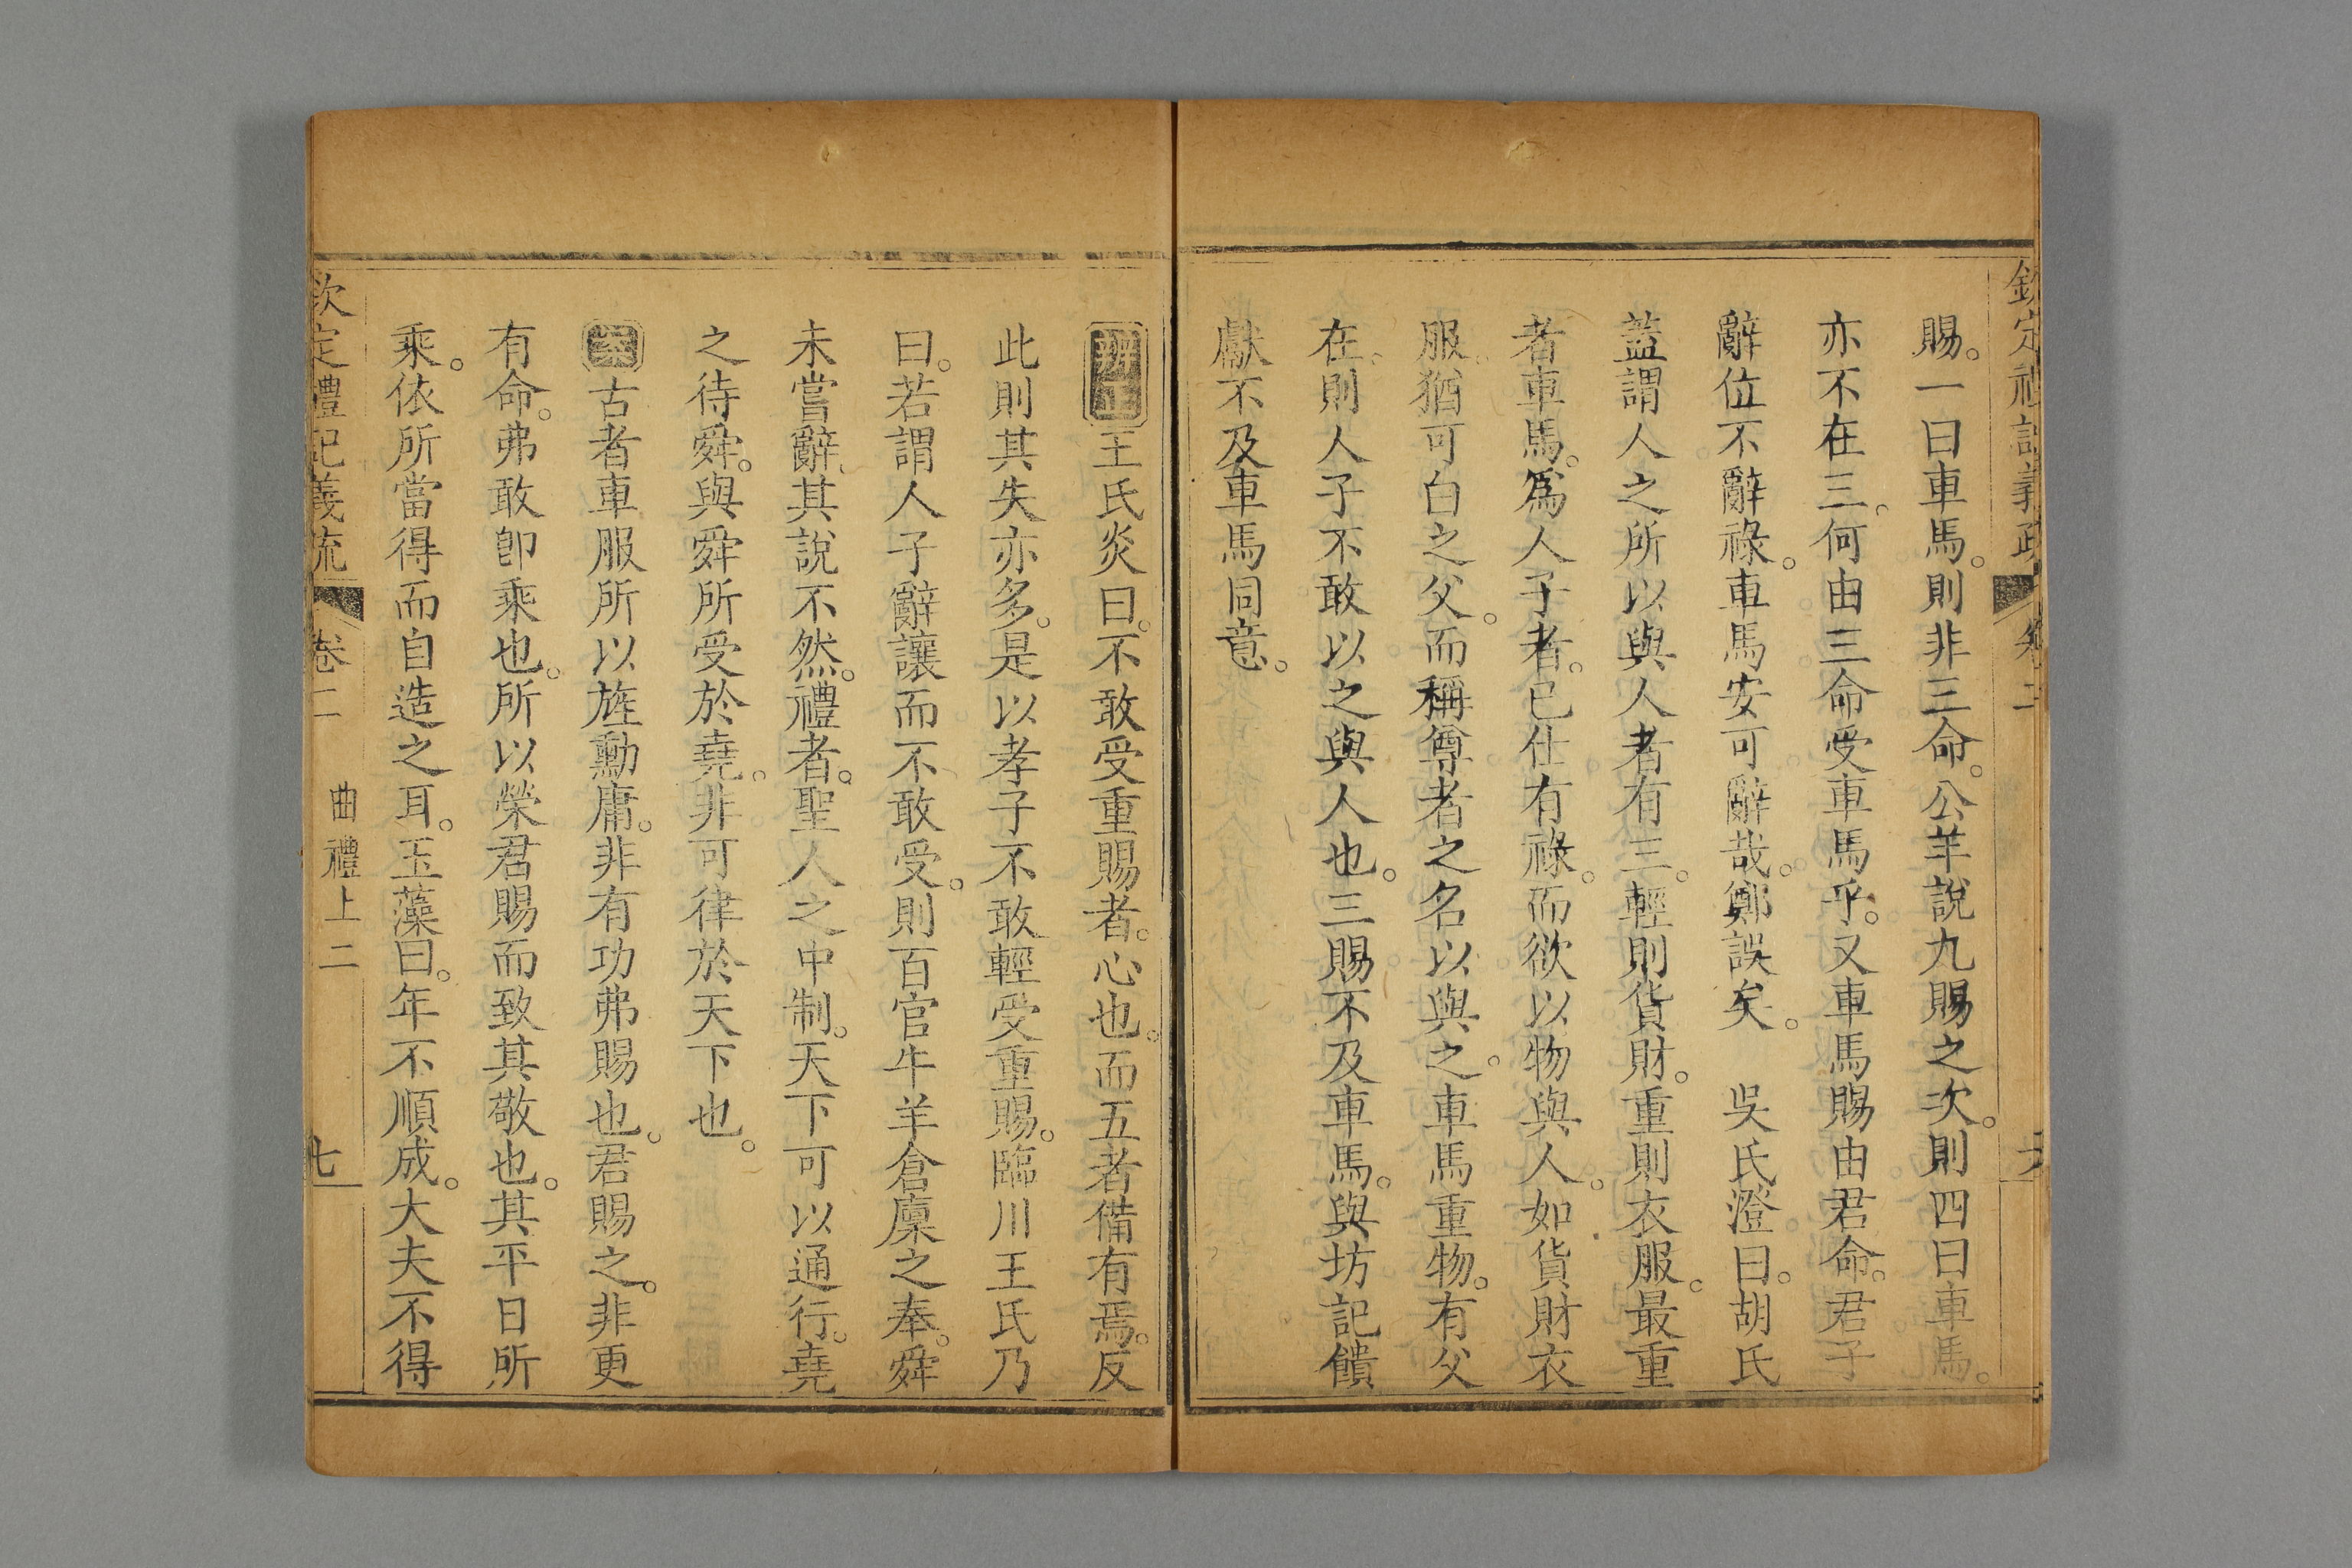 賜。一曰車馬。則非三命。公羊說九賜之次。則四曰車馬。
亦不在三。何由三命受車馬乎。又車馬賜由君命。君子
辭位不辭祿。車馬安可辭哉。鄭誤矣。　吳氏澄曰。胡氏
蓋謂人之所以與人者有三。輕則貨財。重則衣服。最重
者車馬。爲人子者。已仕有祿。而欲以物與人。如貨財衣
服。猶可白之父。而稱尊者之名以與之。車馬重物。有父
在。則人子不敢以之與人也。三賜不及車馬。與坊記饋
獻不及車馬同意。
辨正王氏炎曰。不敢受重賜者。心也。而五者備有焉。反
此則其失亦多。是以孝子不敢輕受重賜。臨川王氏乃
曰。若謂人子辭讓而不敢受。則百官牛羊倉廩之奉。舜
未嘗辭、其說不然。禮者。聖人之中制。天下可以通行。堯
之待舜。與舜所受於堯。非可律於天下也。
案古者車服所以旌勳庸。非有功弗賜也。君賜之。非更
有命。弗敢卽乘也。所以榮君賜而致其敬也。其平日所
乘。依所當得而自造之耳。玉藻曰。年不順成。大夫不得
欽定禮記義疏
卷二
曲禮上二
七